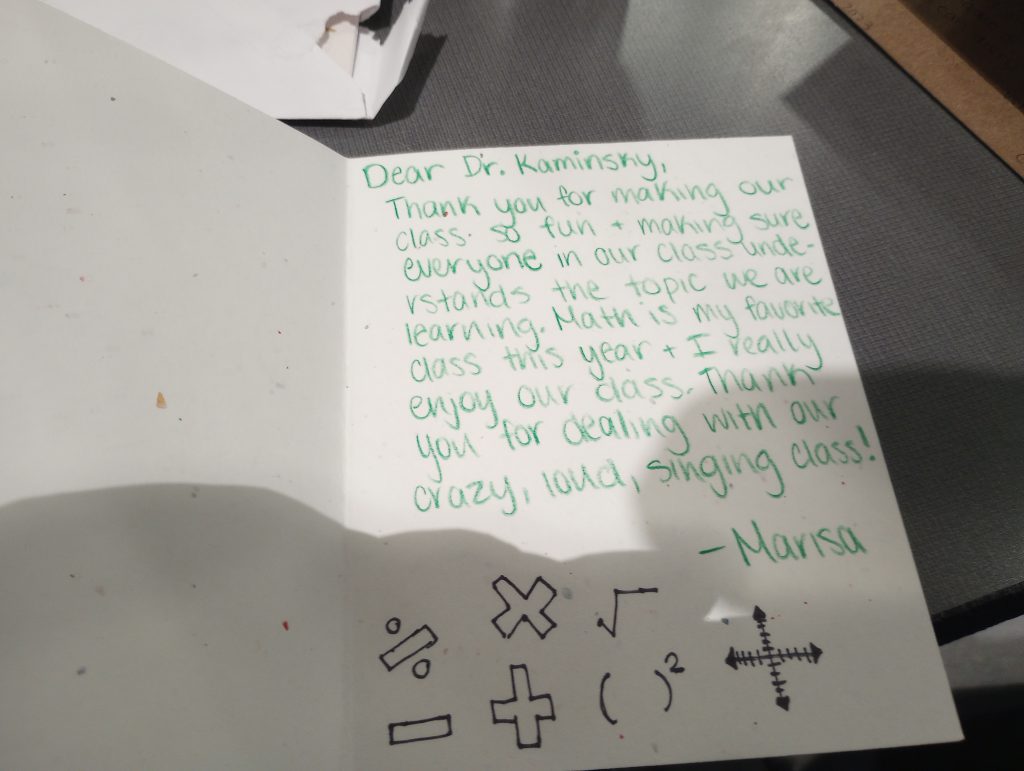 Dear Dr. Kaminsky,
Thank you for making our
class so fun + making sure
everyone in our class unde-
rstands the topic we are
learning. Math is my favorite
class this year + I really
enjoy our class. Thank
you for dealing with our
crazy, loud, singing class!
- Marisa
÷ × √
- + ( )²